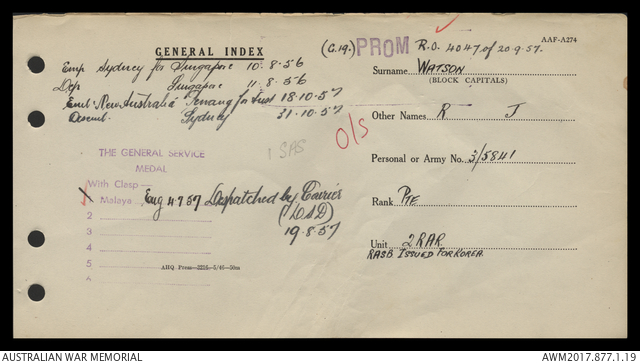 AAF-A274
(C.19.) PROM R.O. 4047 of 20.9.57.
GENERAL INDEX
Emp Sydney for Singapore 10.8.56
Dep Singapore 11.8.56
Emb. 'New Australia' Penang for Aust 18.10.57
Disemb. Sydney 31.10.57
O/S
1 SAS
Surname WATSON
(BLOCK CAPITALS)
Other Names R J
Personal or Army No. 3/5841
Rank PTE
Unit 2RAR
RASB ISSUED FOR KOREA
THE GENERAL SERVICE
MEDAL
With Clasp
X Malaya Eng 4.7.57 Despatched by Courier
2
19.8.57
3
4
5
AHQ Press—3226—5/46—50m
AUSTRALIAN WAR MEMORIAL
AWM2017.877.1.19